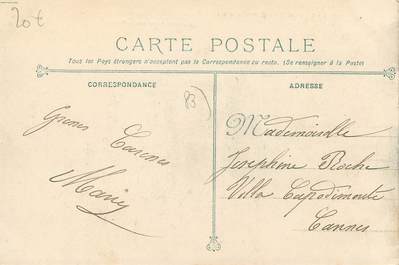 20€
CARTE POSTALE
Tous les Pays étrangers n'acceptent pas la Correspondance au recto. (Se renseigner à la Poste)
CORRESPONDANCE
ADRESSE
83
Mademoiselle
Josephine Roche
Villa Capodimonte
Cannes
Caresses
Marie